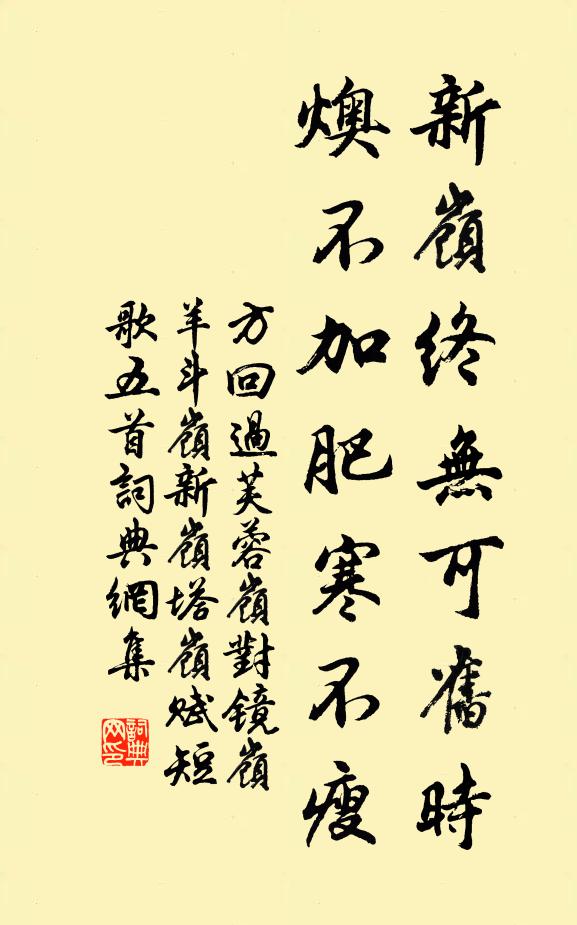 新嶺終無可舊時
燠不加肥寒不瘦
方回過芙蓉嶺對鏡嶺
羊斗嶺新嶺塔嶺賦短
歌五首詞典網集
詞典
网印